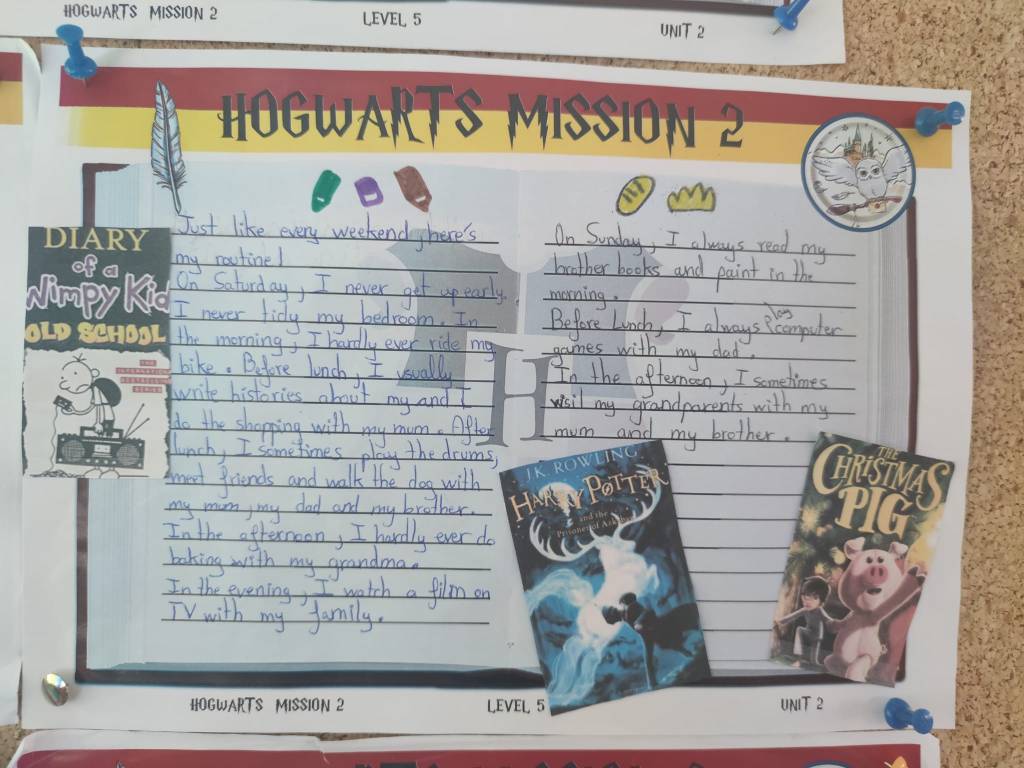 HOGWARTS MISSION 2
LEVEL 5
UNIT 2
HOGWARTS MISSION 2
DIARY
of a
Wimpy Kid
OLD SCHOOL
THE
INTERNATIONAL
BESTSELLING
SERIES
Just like every weekend, here's
my routine!
On Saturday, I never get up early.
I never tidy my bedroom. In
the morning, I hardly ever ride my
bike. Before lunch, I usually
write histories about my and I
do the shopping with my mum. After
lunch, I sometimes play the drums,
meet friends and walk the dog with
my mum, my dad and my brother.
In the afternoon, I hardly ever do
baking with my grandma.
In the evening, I watch a film on
TV with my family.
On Sunday, I always read my
brother books and paint in the
morning.
Before Lunch, I always play computer
games with my dad.
In the afternoon, I sometimes
visit my grandparents with my
mum and my brother.
H
J.K. ROWLING
HARRY POTTER
and the
Prisoner of Azkaban
THE
CHRISTMAS
PIG
HOGWARTS MISSION 2
LEVEL 5
UNIT 2